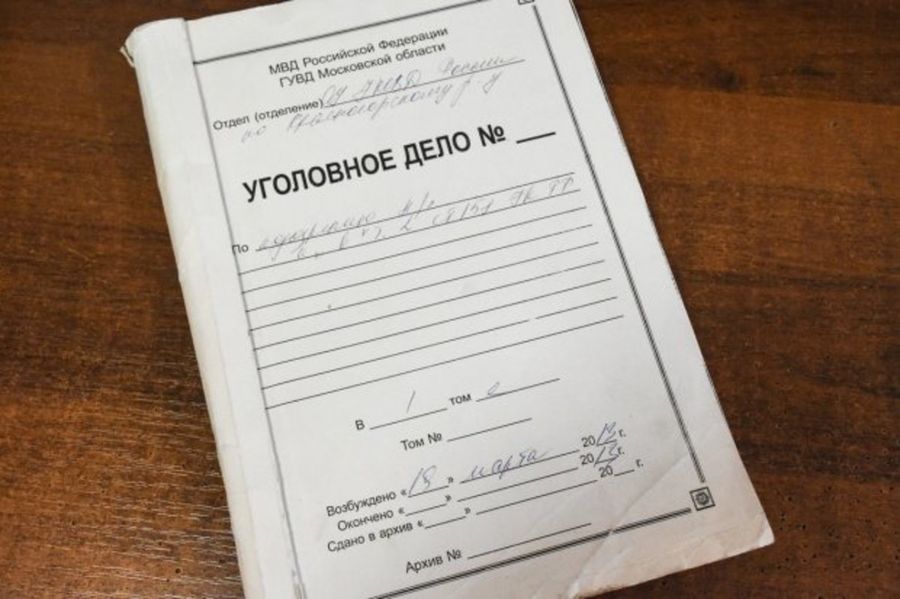 МВД Российской Федерации
ГУВД Московской области
Отдел (отделение) ОУ УМВД России
по Красногорскому р-у
УГОЛОВНОЕ ДЕЛО № ___
По
В 1 томе
Том №
Возбуждено «18» марта 2013 г.
Окончено «___» 2013 г.
Сдано в архив «___» 20__ г.
Архив №